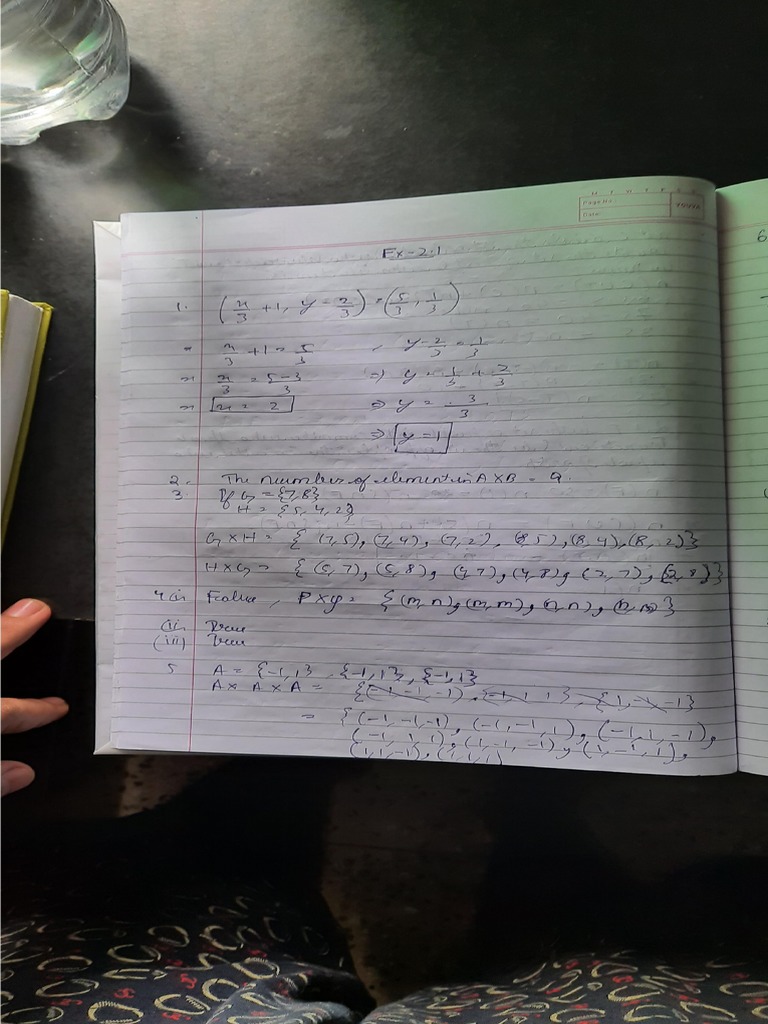 M T W T F S S
Page No.:
Date:
YOUVA
Ex-2.1
1. (x/3 + 1, y - 2/3) = (5/3, 1/3)
= x/3 + 1 = 5/3 , y - 2/3 = 1/3
⇒ x/3 = 5-3/3 ⇒ y = 1/3 + 2/3
⇒ x = 2 ⇒ y = 3/3
⇒ y = 1
2. The number of element in A×B = 9.
3. If G = {7,8}
H = {5, 4, 2}
G × H = { (7,5), (7,4), (7,2), (8,5), (8,4), (8,2)}
H × G = { (5,7), (5,8), (4,7), (4,8), (2,7), (2,8)}
4(i) False, P × Q = {(m,n), (m,m), (n,n), (n,m)}
(ii) True
(iii) True
5 A = {-1,1} , {-1,1}, {-1,1}
A × A × A =
= {(-1,-1,-1), (-1,-1,1), (-1,1,-1),
(-1,1,1), (1,-1,-1), (1,-1,1),
(1,1,-1), (1,1,1)
6